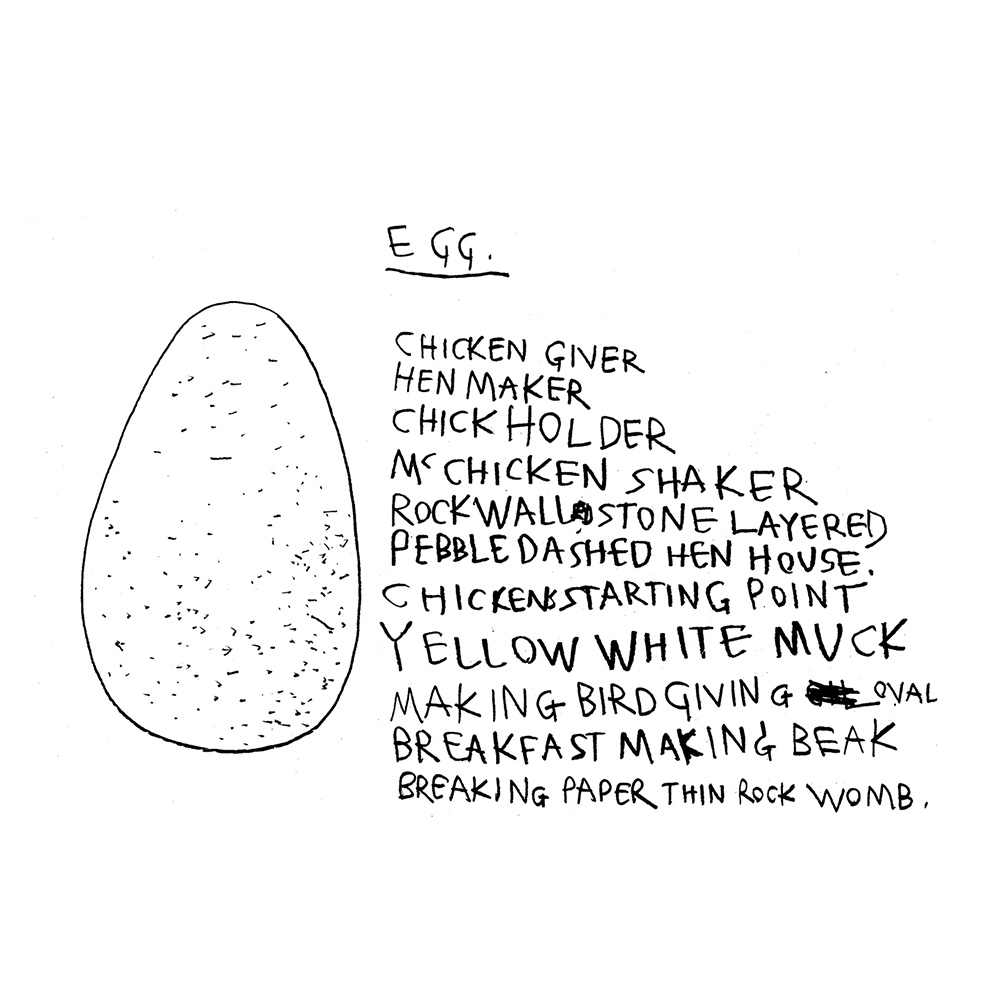 EGG.
CHICKEN GIVER
HEN MAKER
CHICK HOLDER
Mc CHICKEN SHAKER
ROCK WALL STONE LAYERED
PEBBLE DASHED HEN HOUSE.
CHICKENS STARTING POINT
YELLOW WHITE MUCK
MAKING BIRD GIVING OVAL
BREAKFAST MAKING BEAK
BREAKING PAPER THIN ROCK WOMB.